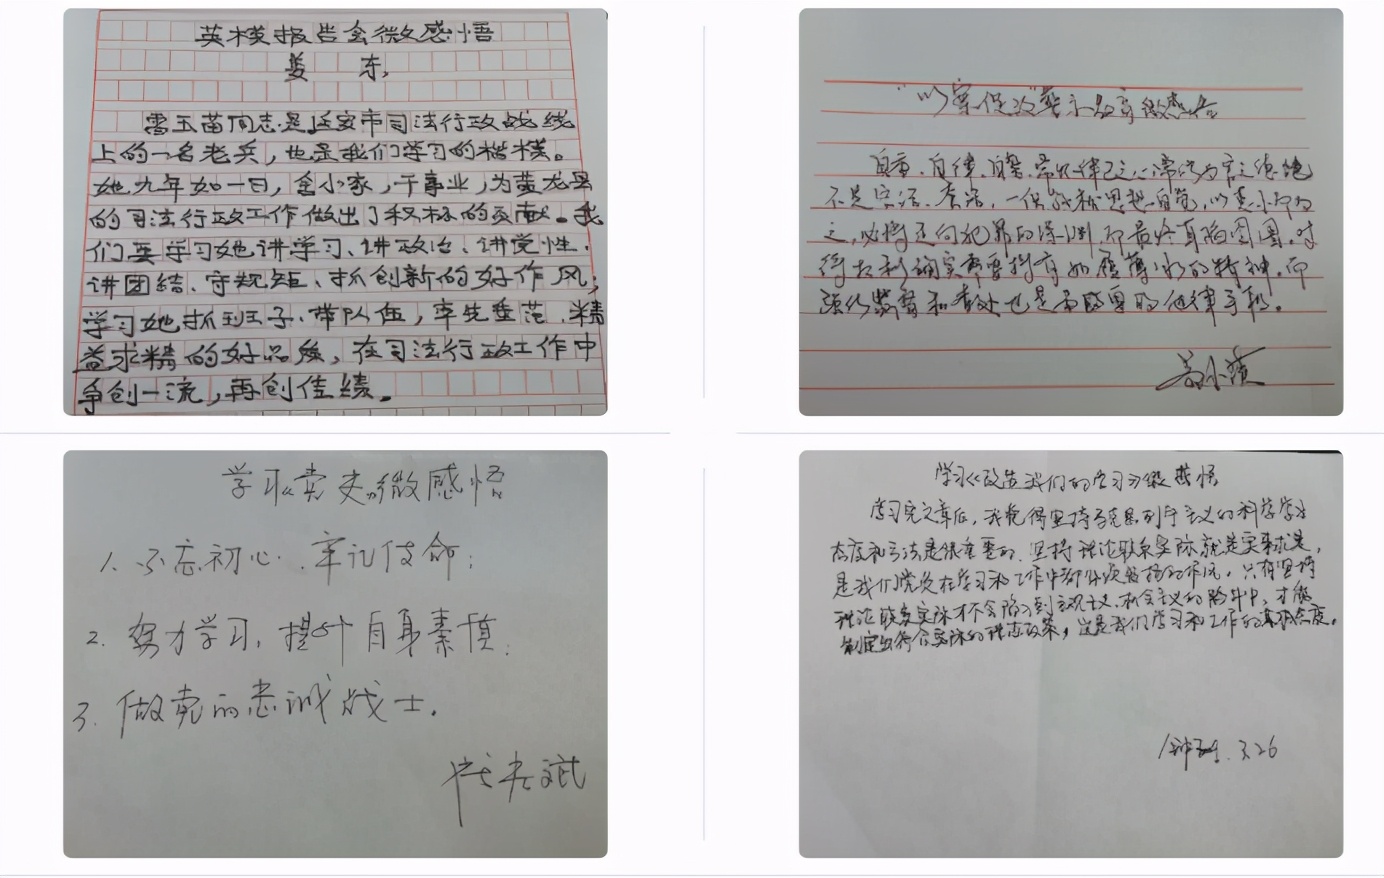 英模报告会微感悟
姜 东
雷玉苗同志是延安市司法行政战线
上的一名老兵，也是我们学习的楷模。
她九年如一日，舍小家，干事业，为黄龙县
的司法行政工作做出了积极的贡献。我
们要学习她讲学习、讲政治、讲党性、
讲团结、守规矩、抓创新的好作风；
学习她抓班子、带队伍，率先垂范、精
益求精的好品质，在司法行政工作中
争创一流，再创佳绩。
"以案促改"警示教育微感悟
自重、自律、自警、常以律己之心
不是空话、套话，一但放松思想自觉，以
之，必将走向犯罪的深渊而最终身陷囹圄。对
待权利确实需要持有如履薄冰的精神。而
强化监督和查处也是
的他律手段。
学习《党史》微感悟
1、不忘初心、牢记使命；
2、努力学习，提升自身素质；
3、做党的忠诚战士。
学习《改造我们的学习》微感悟
学习完文章后，我觉得坚持马克思列宁主义的科学学习
态度和方法是很重要的，坚持理论联系实际就是实事求是，
是我们党员在学习和工作中都必须坚持的作风，只有坚持
理论联系实际才不会陷入到主观主义、机会主义的陷井中，才能
制定出符合实际的理念政策，这是我们学习和工作的基本态度。
3.26